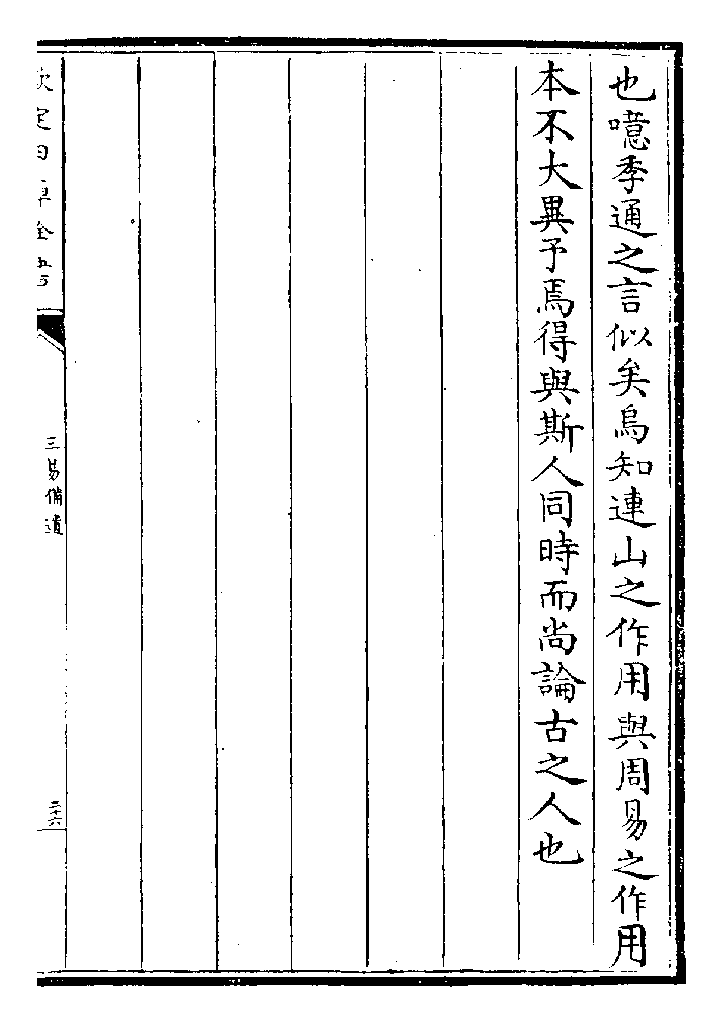 也噫季通之言似矣烏知連山之作用與周易之作用
本不大異予焉得與斯人同時而尚論古之人也
欽定四庫全書
三易備遺
三十六